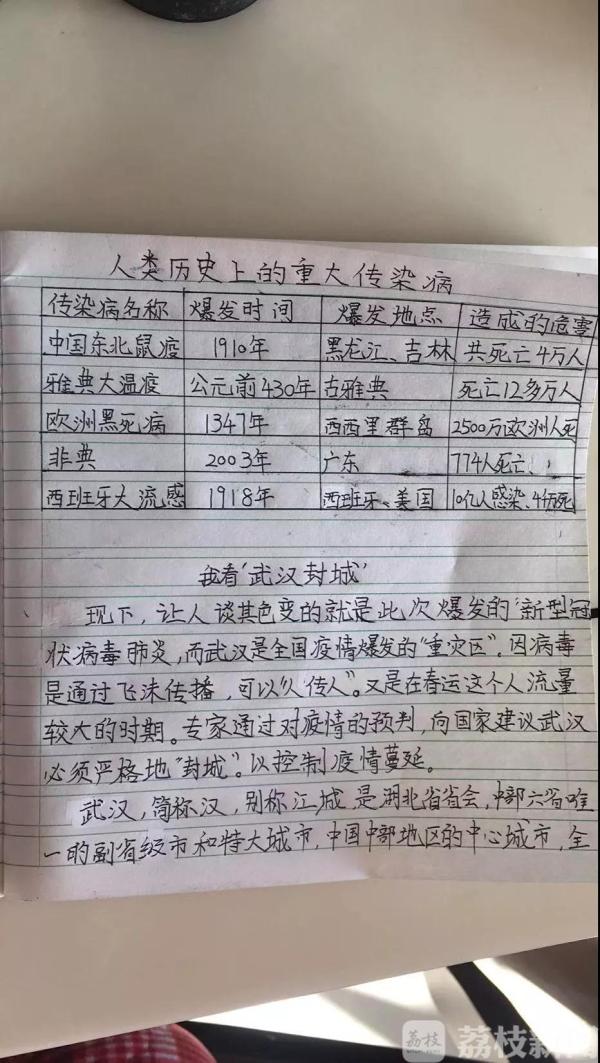 人类历史上的重大传染病
传染病名称 爆发时间 爆发地点 造成的危害
中国东北鼠疫 1910年 黑龙江、吉林 共死亡4万人
雅典大温疫 公元前430年 古雅典 死亡12多万人
欧洲黑死病 1347年 西西里群岛 2500万欧洲人死
非典 2003年 广东 774人死亡
西班牙大流感 1918年 西班牙、美国 10亿人感染、
我看“武汉封城”
现下，让人谈其色变的就是此次爆发的“新型冠
状病毒肺炎，而武汉是全国疫情爆发的“重灾区”。因病毒
是通过飞沫传播，可以“人传人”。又是在春运这个人流量
较大的时期。专家通过对疫情的预判，向国家建议武汉
必须严格地“封城”。以控制疫情蔓延。
武汉，简称汉，别称江城是湖北省省会，中部六省唯
一的副省级市和特大城市，中国中部地区的中心城市，全
荔枝 荔枝新